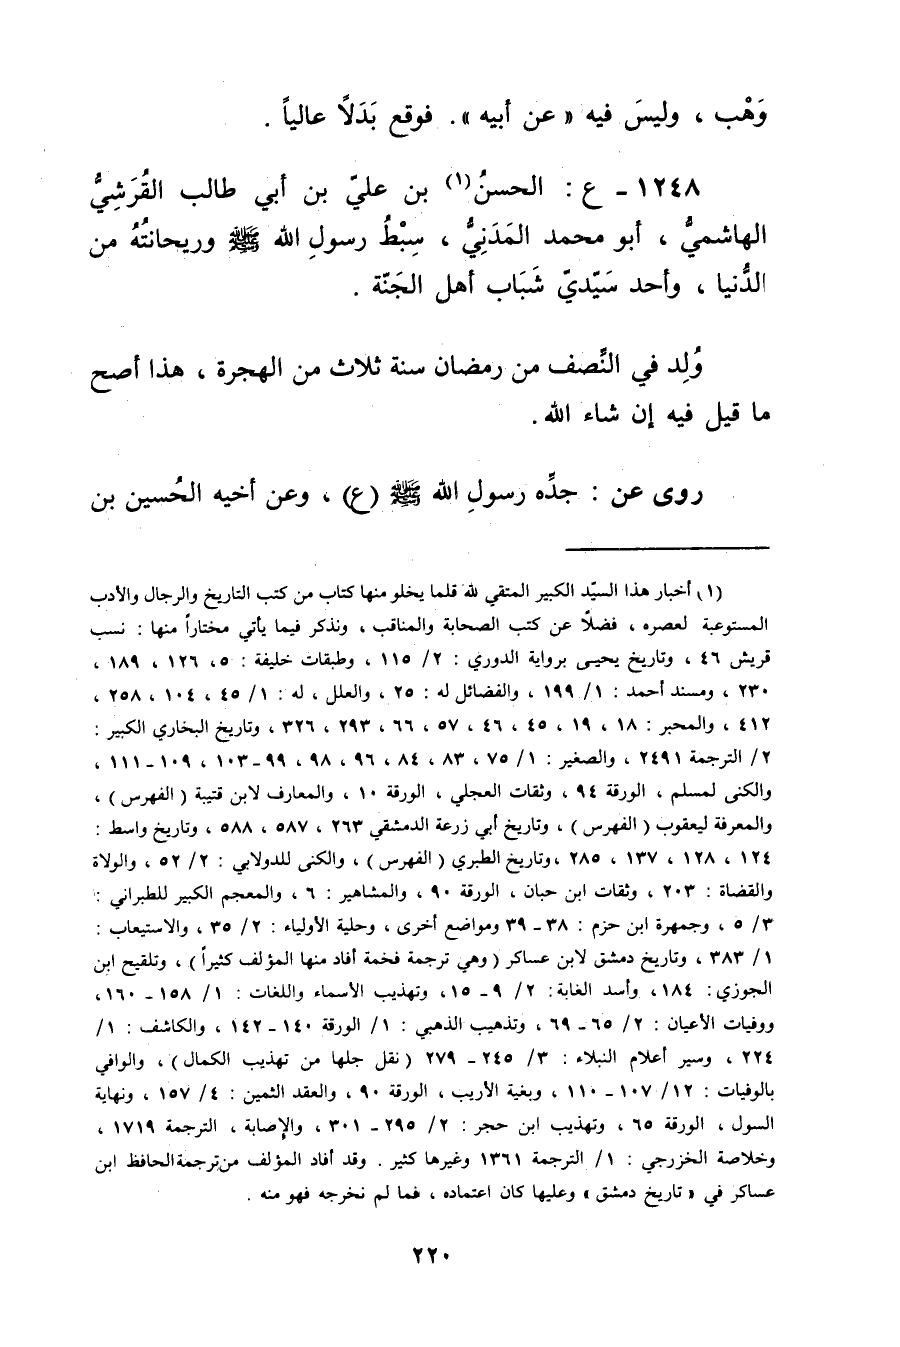 وَهْب ، وليسَ فيه « عن أبيه ». فوقع بَدَلاً عالياً .
١٢٤٨ - ع : الحسنُ(١) بن عليّ بن أبي طالب القُرَشِيُّ
الهاشميُّ ، أبو محمد المَدَنِيُّ ، سِبْطُ رسولِ الله ﷺ وريحانتُهُ من
الدُّنيا ، وأحد سَيّديّ شَبَاب أهل الجَنّة .
وُلِد في النِّصف من رمضان سنة ثلاث من الهجرة ، هذا أصح
ما قيل فيه إن شاء الله .
روى عن : جدِّه رسولِ الله ﷺ (ع) ، وعن أخيه الحُسين بن
(١) أخبار هذا السيّد الكبير المتقي لله قلما يخلو منها كتاب من كتب التاريخ والرجال والأدب
المستوعبة لعصره ، فضلاً عن كتب الصحابة والمناقب ، ونذكر فيما يأتي مختاراً منها : نسب
قريش ٤٦ ، وتاريخ يحيى برواية الدوري : ٢/ ١١٥ ، وطبقات خليفة : ٥، ١٢٦ ، ١٨٩ ،
٢٣٠ ، ومسند أحمد : ١/ ١٩٩ ، والفضائل له : ٢٥ ، والعلل ، له : ١/ ٤٥ ، ١٠٤ ، ٢٥٨ ،
٤١٢ ، والمحبر : ١٨ ، ١٩ ، ٤٥ ، ٤٦ ، ٥٧ ، ٦٦ ، ٢٩٣ ، ٣٢٦ ، وتاريخ البخاري الكبير :
٢/ الترجمة ٢٤٩١ ، والصغير : ١/ ٧٥ ، ٨٣ ، ٨٤ ، ٩٦ ، ٩٨ ، ٩٩-١٠٣ ، ١٠٩-١١١ ،
والكنى لمسلم ، الورقة ٩٤ ، وثقات العجلي ، الورقة ١٠ ، والمعارف لابن قتيبة ( الفهرس ) ،
والمعرفة ليعقوب ( الفهرس ) ، وتاريخ أبي زرعة الدمشقي ٢٦٣ ، ٥٨٧ ، ٥٨٨ ، وتاريخ واسط :
١٢٤ ، ١٢٨ ، ١٣٧ ، ٢٨٥ ،وتاريخ الطبري ( الفهرس ) ، والكنى للدولابي : ٢/ ٥٢ ، والولاة
والقضاة : ٢٠٣ ، وثقات ابن حبان ، الورقة ٩٠ ، والمشاهير : ٦ ، والمعجم الكبير للطبراني :
٣/ ٥ ، وجمهرة ابن حزم : ٣٨-٣٩ ومواضع أخرى ، وحلية الأولياء : ٢/ ٣٥ ، والاستيعاب :
١/ ٣٨٣ ، وتاريخ دمشق لابن عساكر ( وهي ترجمة فخمة أفاد منها المؤلف كثيراً ) ، وتلقيح ابن
الجوزي: ١٨٤، وأسد الغابة: ٢/ ٩-١٥، وتهذيب الأسماء واللغات : ١/ ١٥٨-١٦٠،
ووفيات الأعيان : ٢/ ٦٥-٦٩ ، وتذهيب الذهبي : ١/ الورقة ١٤٠-١٤٢ ، والكاشف : ١/
٢٢٤ ، وسير أعلام النبلاء : ٣/ ٢٤٥-٢٧٩ ( نقل جلها من تهذيب الكمال ) ، والوافي
بالوفيات : ١٢/ ١٠٧-١١٠ ، وبغية الأريب ، الورقة ٩٠ ، والعقد الثمين : ٤/ ١٥٧ ، ونهاية
السول ، الورقة ٦٥ ، وتهذيب ابن حجر : ٢/ ٢٩٥-٣٠١ ، والإصابة ، الترجمة ١٧١٩ ،
وخلاصة الخزرجي : ١/ الترجمة ١٣٦١ وغيرها كثير . وقد أفاد المؤلف من ترجمة الحافظ ابن
عساكر في « تاريخ دمشق » وعليها كان اعتماده ، فما لم نخرجه فهو منه .
٢٢٠